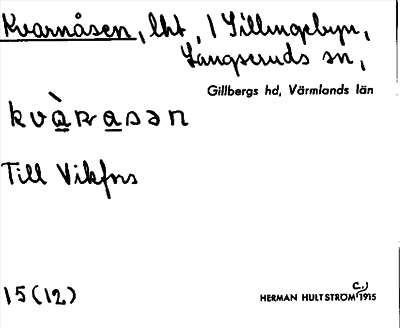 Kvarnåsen, lht, i Sillingebyn,
Långseruds sn,
Gillbergs hd, Värmlands län
kvàʀasən
Till Vikfors
15(12)
HERMAN HULTSTRÖM (c.) 1915